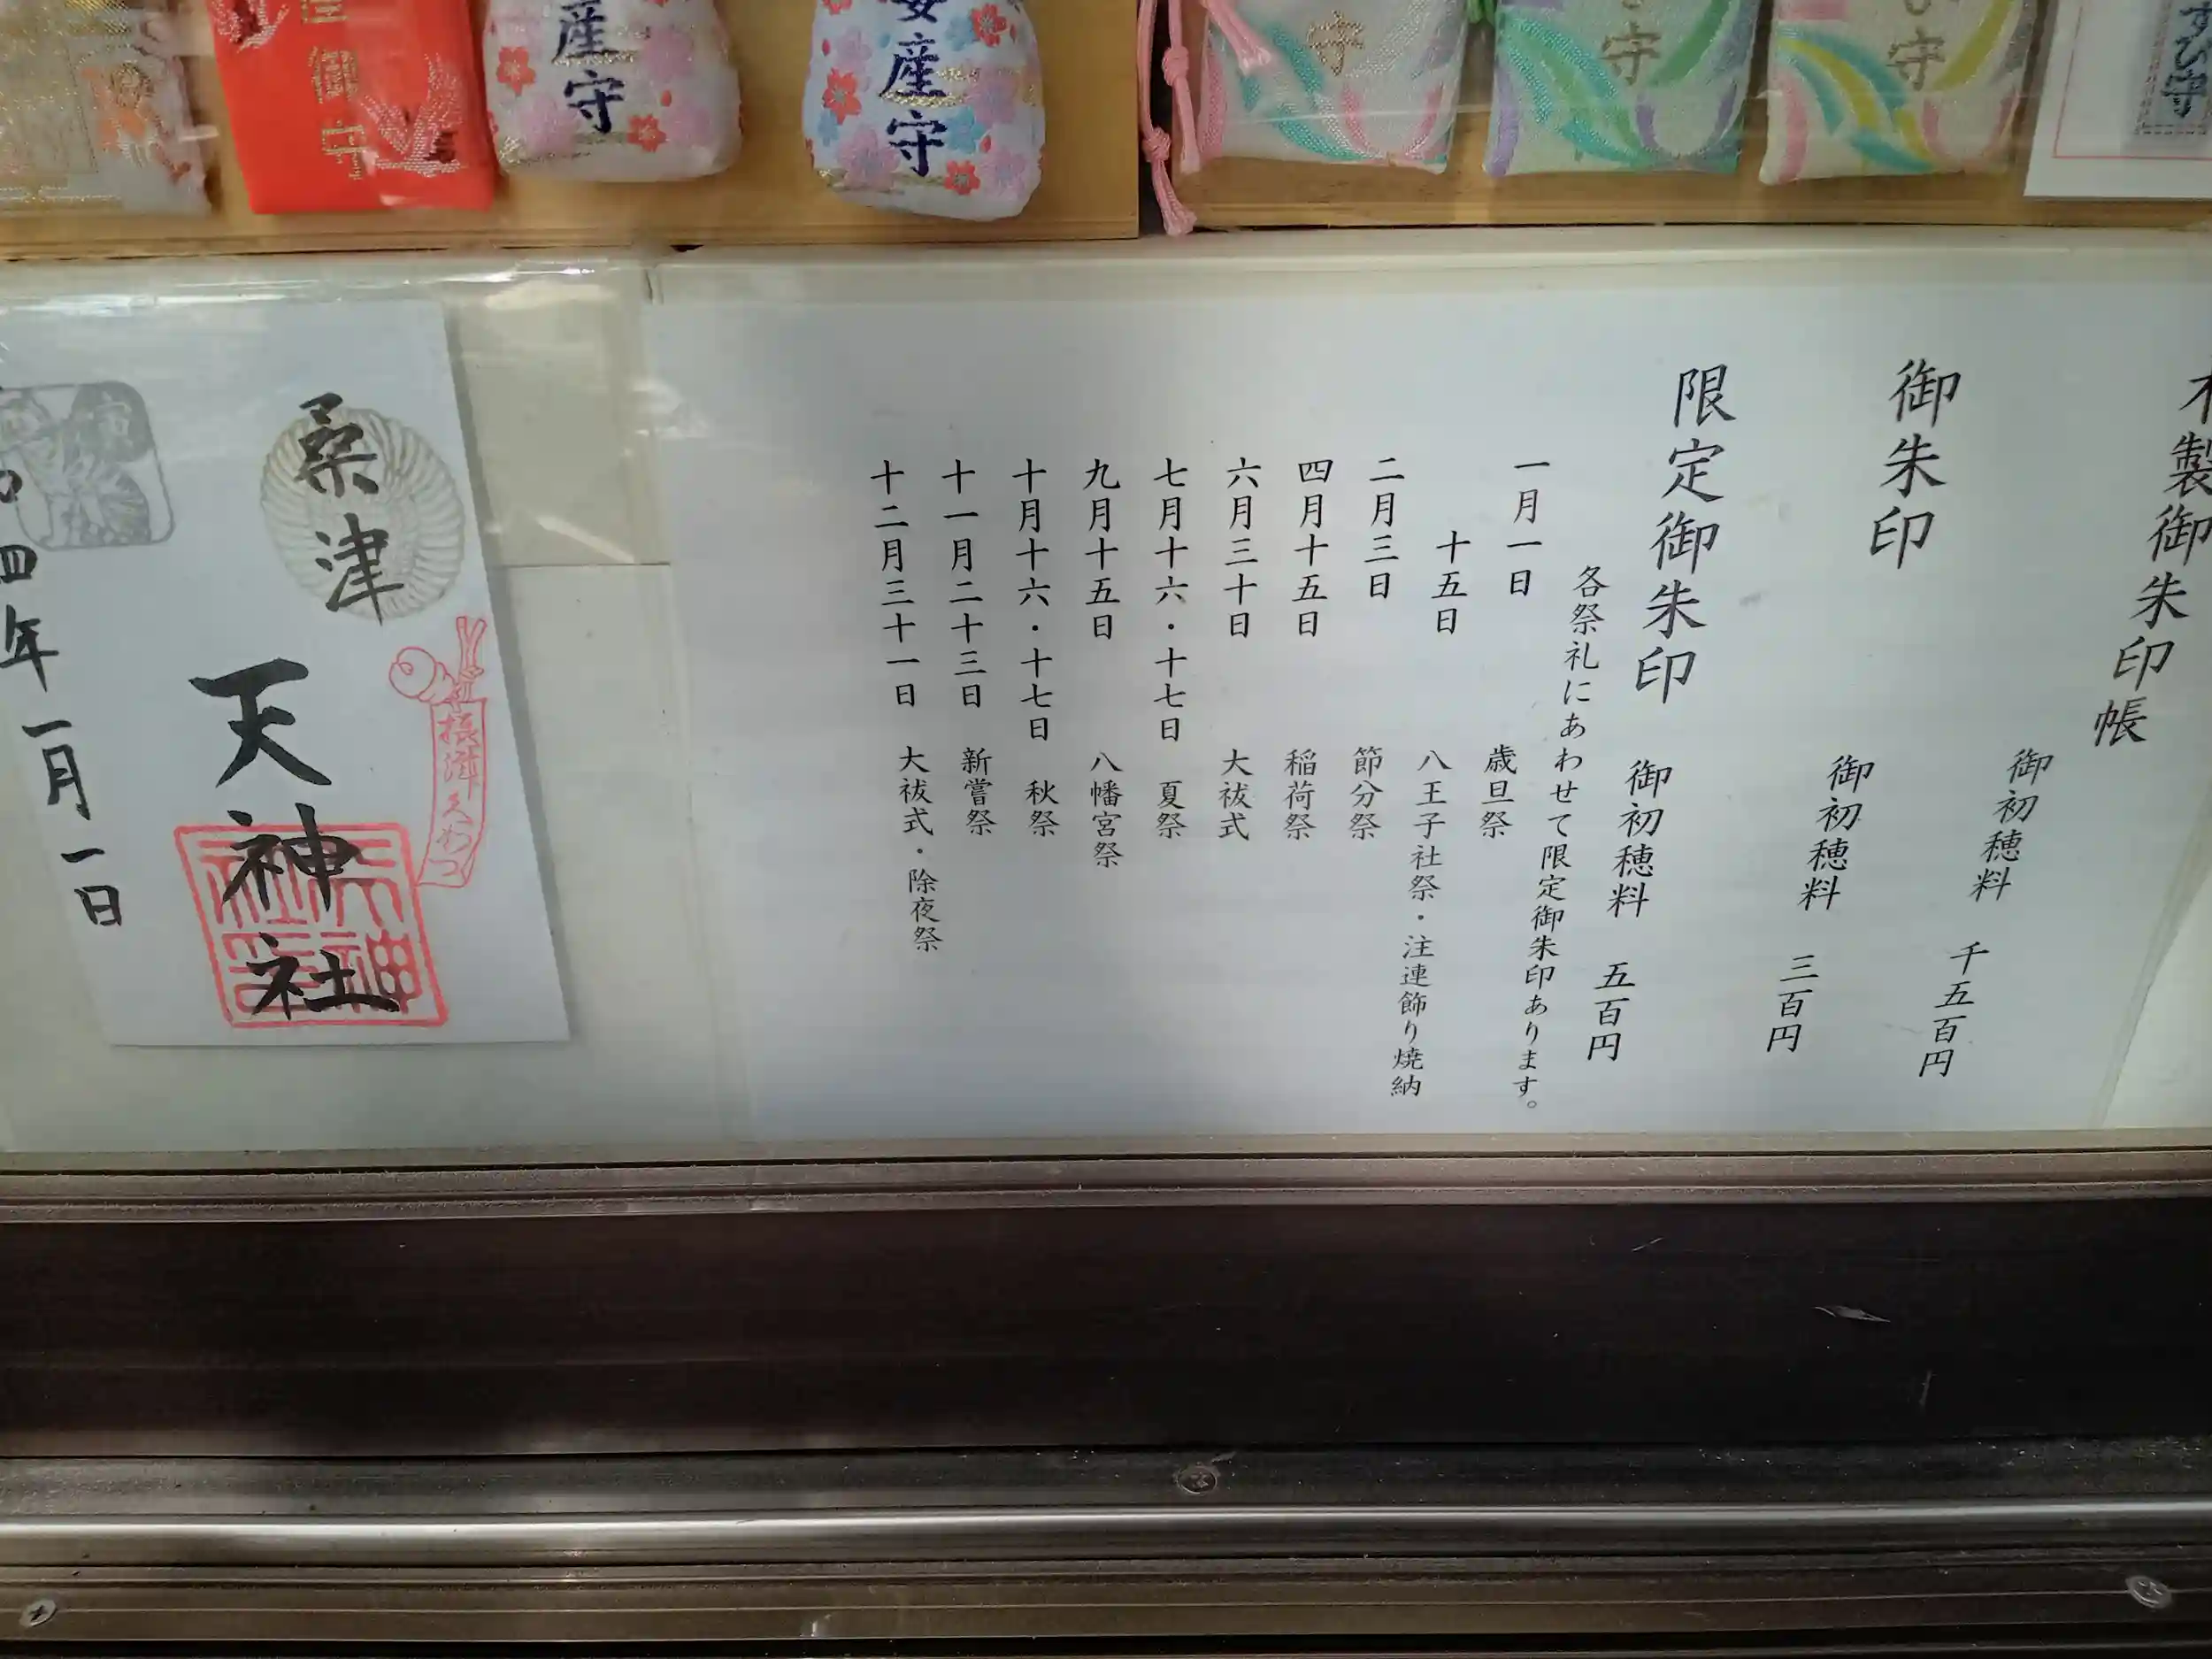 産御守
産守
安産守
守
守
守
すひ守
木製御朱印帳
御初穂料 千五百円
御朱印
御初穂料 三百円
限定御朱印
御初穂料 五百円
各祭礼にあわせて限定御朱印あります。
一月一日 歳旦祭
十五日 八王子社祭・注連飾り焼納
二月三日 節分祭
四月十五日 稲荷祭
六月三十日 大祓式
七月十六・十七日 夏祭
九月十五日 八幡宮祭
十月十六・十七日 秋祭
十一月二十三日 新嘗祭
十二月三十一日 大祓式・除夜祭
桑津
天神社
摂津之わつ
四年一月一日
寅